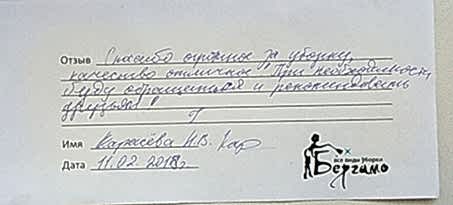 Отзыв Спасибо огромное за уборку,
качество отличное! При необходимости
буду обращаться и рекомендовать
друзьям!
Имя Карасёва И.В. Кар
Дата 11.02.2018г.
все виды уборки
Бергамо